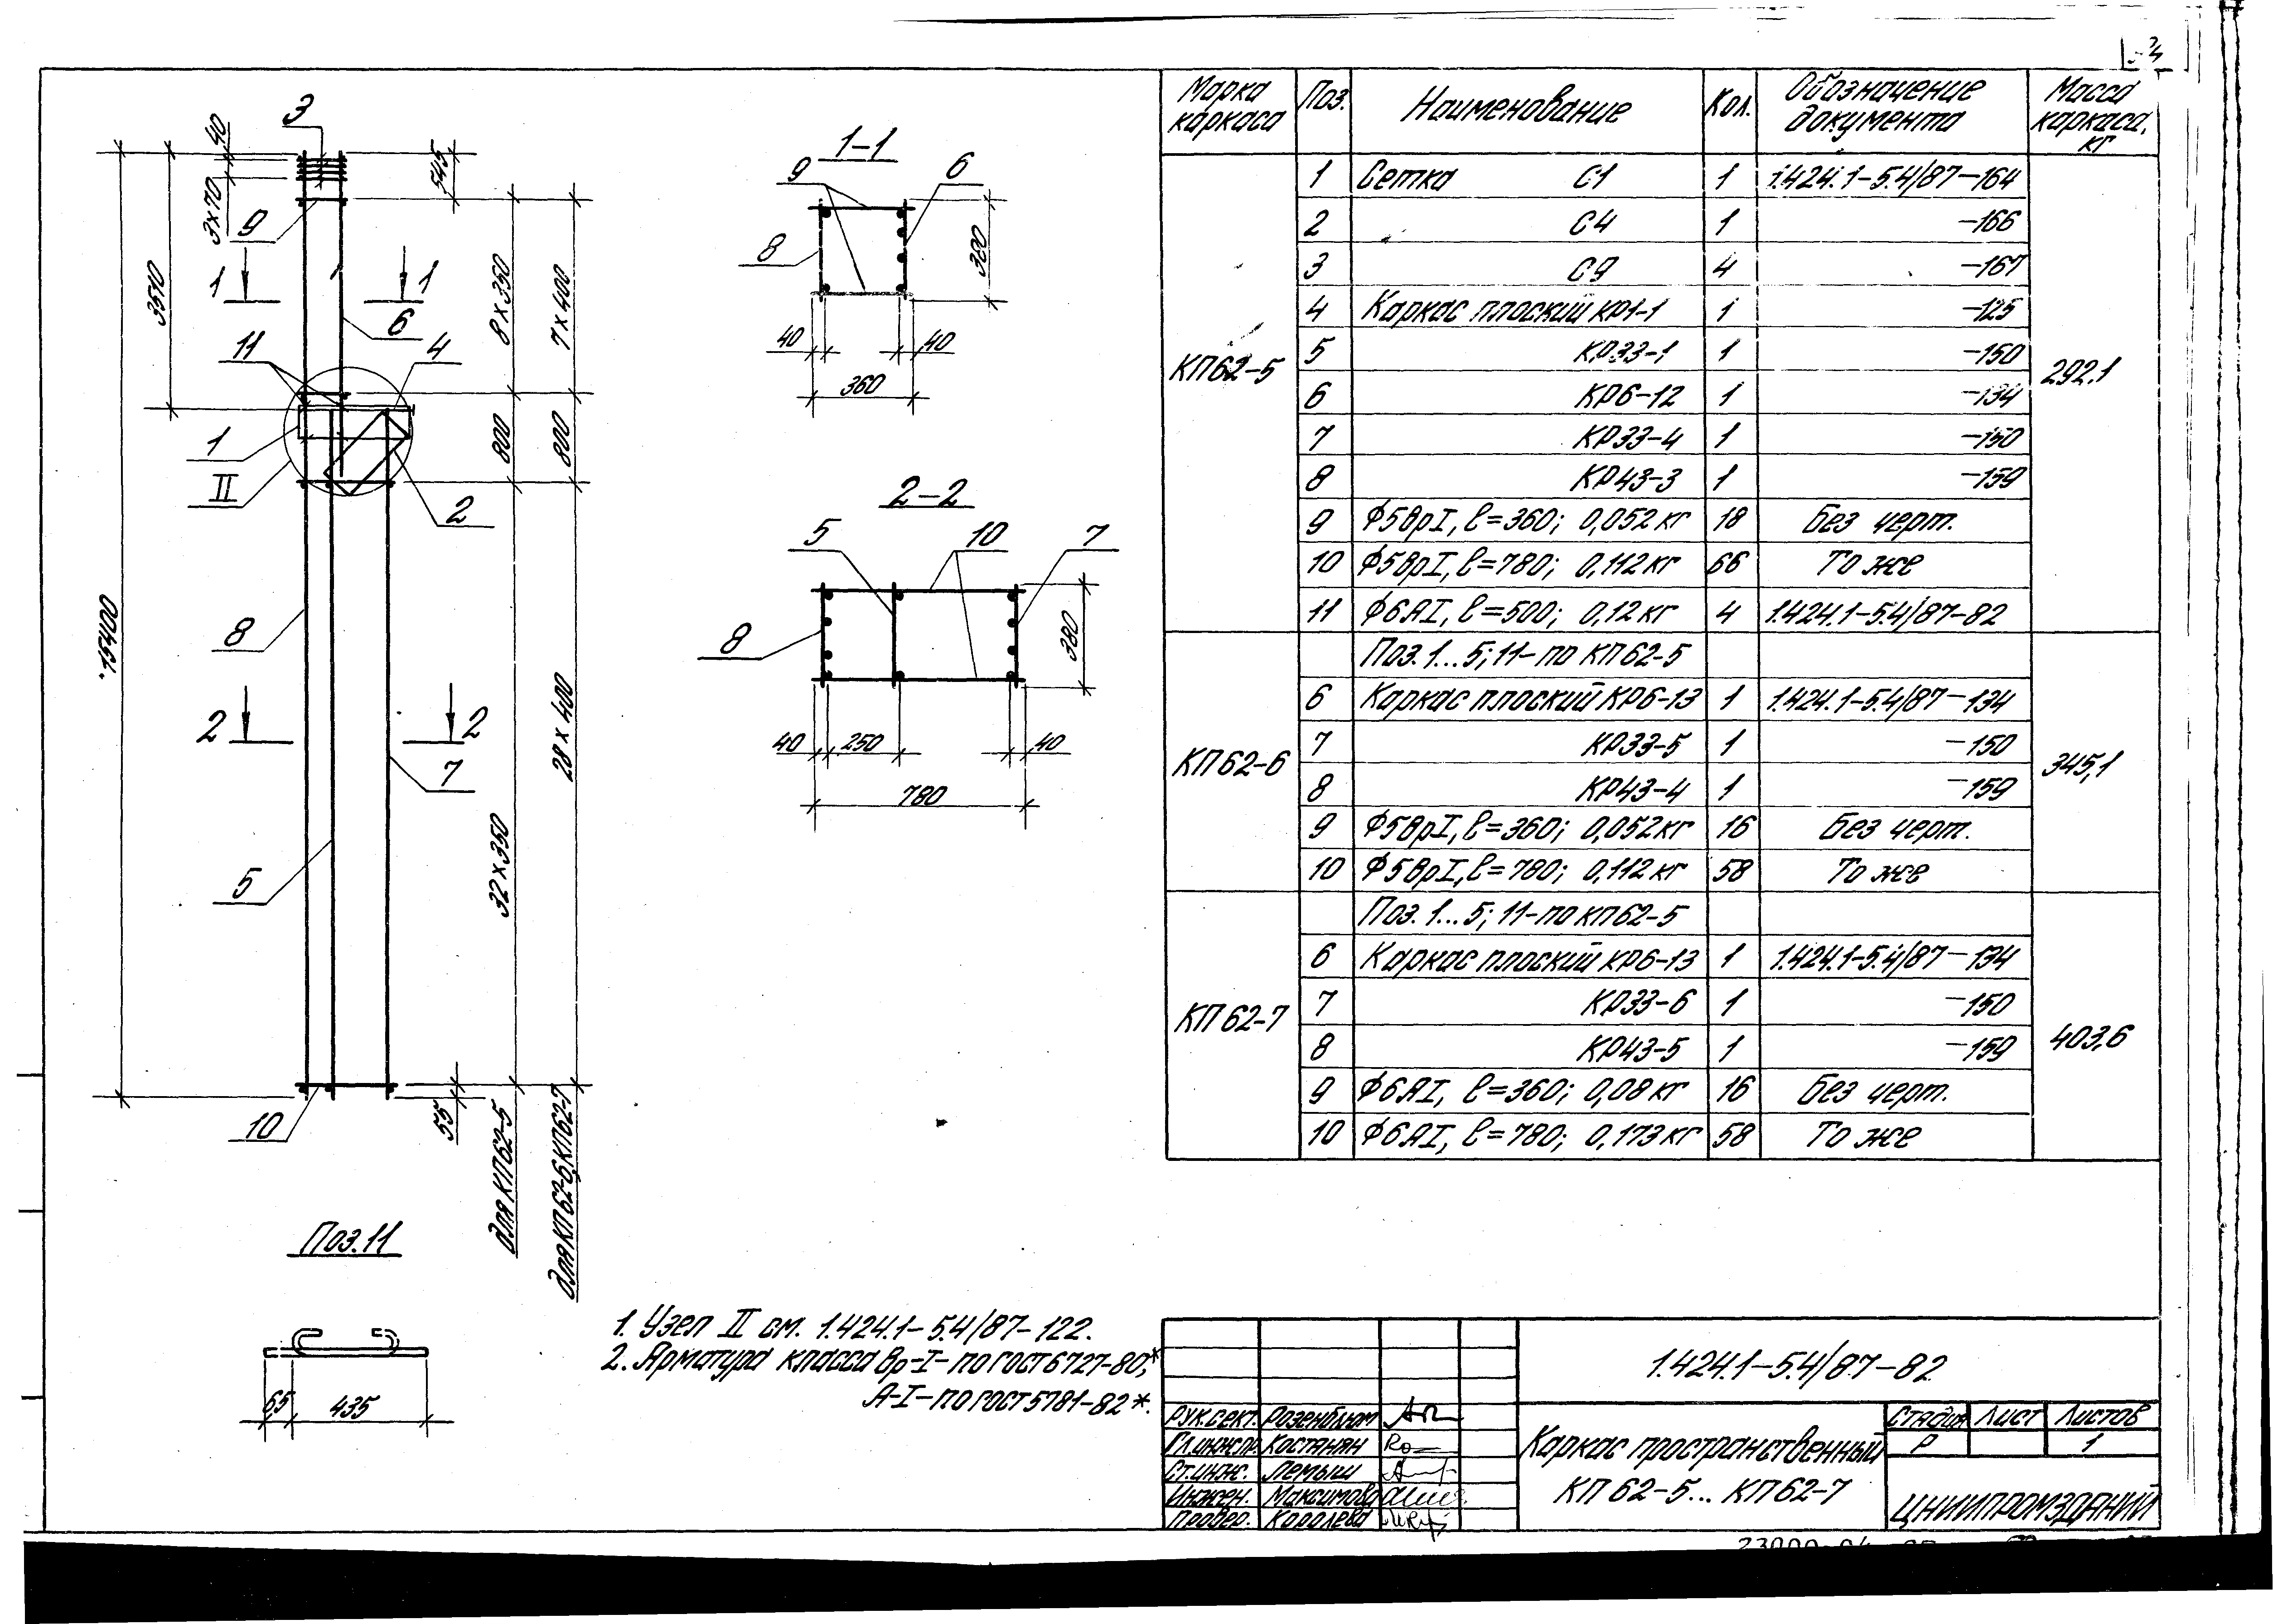 3
40
3×70
545
9
1
1
3510
8×350
7×400
6
11
4
1
II
800
800
2
15400
8
2
2
7
28×400
32×350
5
10
55
для КП62-5
для КП62-6, КП62-7
Поз.11
65
435
1-1
9
6
8
380
40
40
360
2-2
5
10
7
8
380
40
250
40
780
Марка каркаса
Поз.
Наименование
Кол.
Обозначение документа
Масса каркаса, кг
КП62-5
292.1
1 Сетка С1 1 1.424.1-5.4/87-164
2 С4 1 -166
3 С9 4 -167
4 Каркас плоский КР1-1 1 -125
5 КР33-1 1 -150
6 КР6-12 1 -134
7 КР33-4 1 -150
8 КР43-3 1 -159
9 Ф5ВрI, ℓ=360; 0,052кг 18 Без черт.
10 Ф5ВрI, ℓ=780; 0,112кг 66 То же
11 Ф6АI, ℓ=500; 0,12кг 4 1.424.1-5.4/87-82
КП62-6
345,1
Поз. 1...5; 11-по КП62-5
6 Каркас плоский КР6-13 1 1.424.1-5.4/87-134
7 КР33-5 1 -150
8 КР43-4 1 -159
9 Ф5ВрI, ℓ=360; 0,052кг 16 Без черт.
10 Ф5ВрI, ℓ=780; 0,112кг 58 То же
КП62-7
403,6
Поз. 1...5; 11-по КП62-5
6 Каркас плоский КР6-13 1 1.424.1-5.4/87-134
7 КР33-6 1 -150
8 КР43-5 1 -159
9 Ф6АI, ℓ=360; 0,08кг 16 Без черт.
10 Ф6АI, ℓ=780; 0,173кг 58 То же
1. Узел II см. 1.424.1-5.4/87-122.
2. Арматура класса Вр-I-по ГОСТ 6727-80*,
А-I-по ГОСТ 5781-82*.
1.424.1-5.4/87-82
Рук.сект. Розенблюм
Гл.инж.пр. Костанян
Ст.инж. Лемыш
Инжен. Максимова
Провер. Королева
Каркас пространственный
КП 62-5... КП 62-7
Стадия Лист Листов
Р 1
ЦНИИПРОМЗДАНИЙ